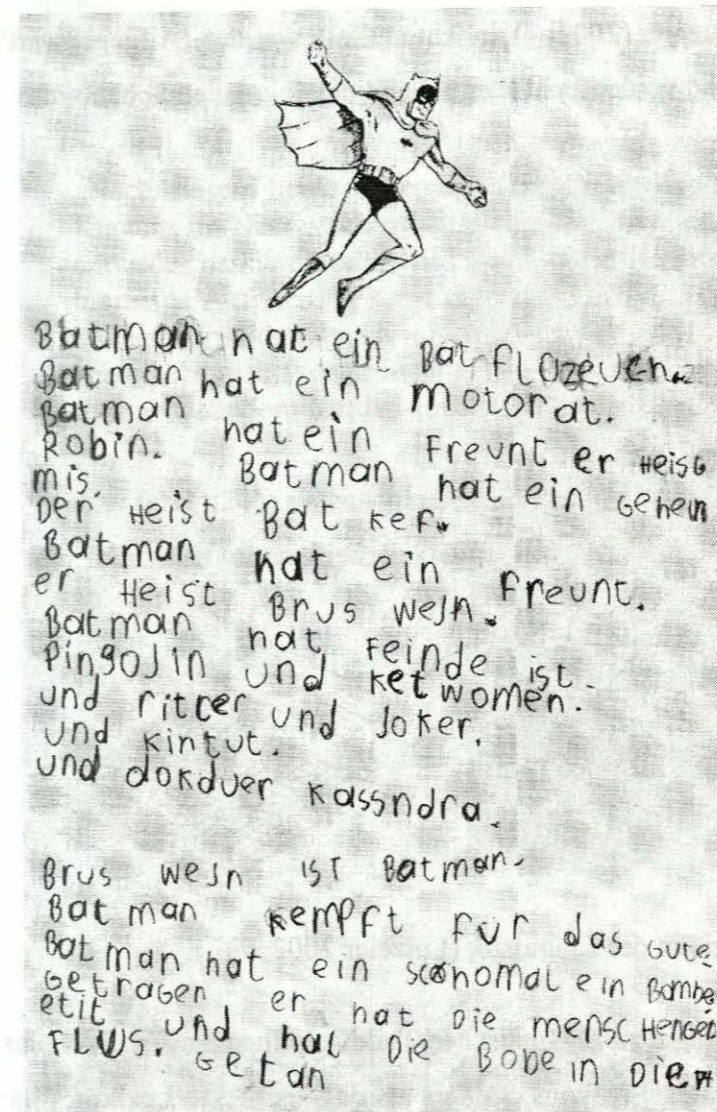 Batman hat ein Bat flOzeuch.
Batman hat ein motorat.
Batman hat ein Freunt er Heist
Robin. Batman hat ein Gehein
mis.
Der Heist Bat Kef.
Batman hat ein Freunt.
er Heist Brus weJn.
Batman hat Feinde ist
PingoJin und Ketwomen.
und ritter und Joker.
und Kintut.
und dokduer Kassndra.
Brus weJn ist Batman.
Batman Kempft Fur das Gute.
Batman hat ein sconomal ein Bombe
Getragen er hat Die menscHenGer
etit und hat Die Bobe in Die
FLUS. Getan